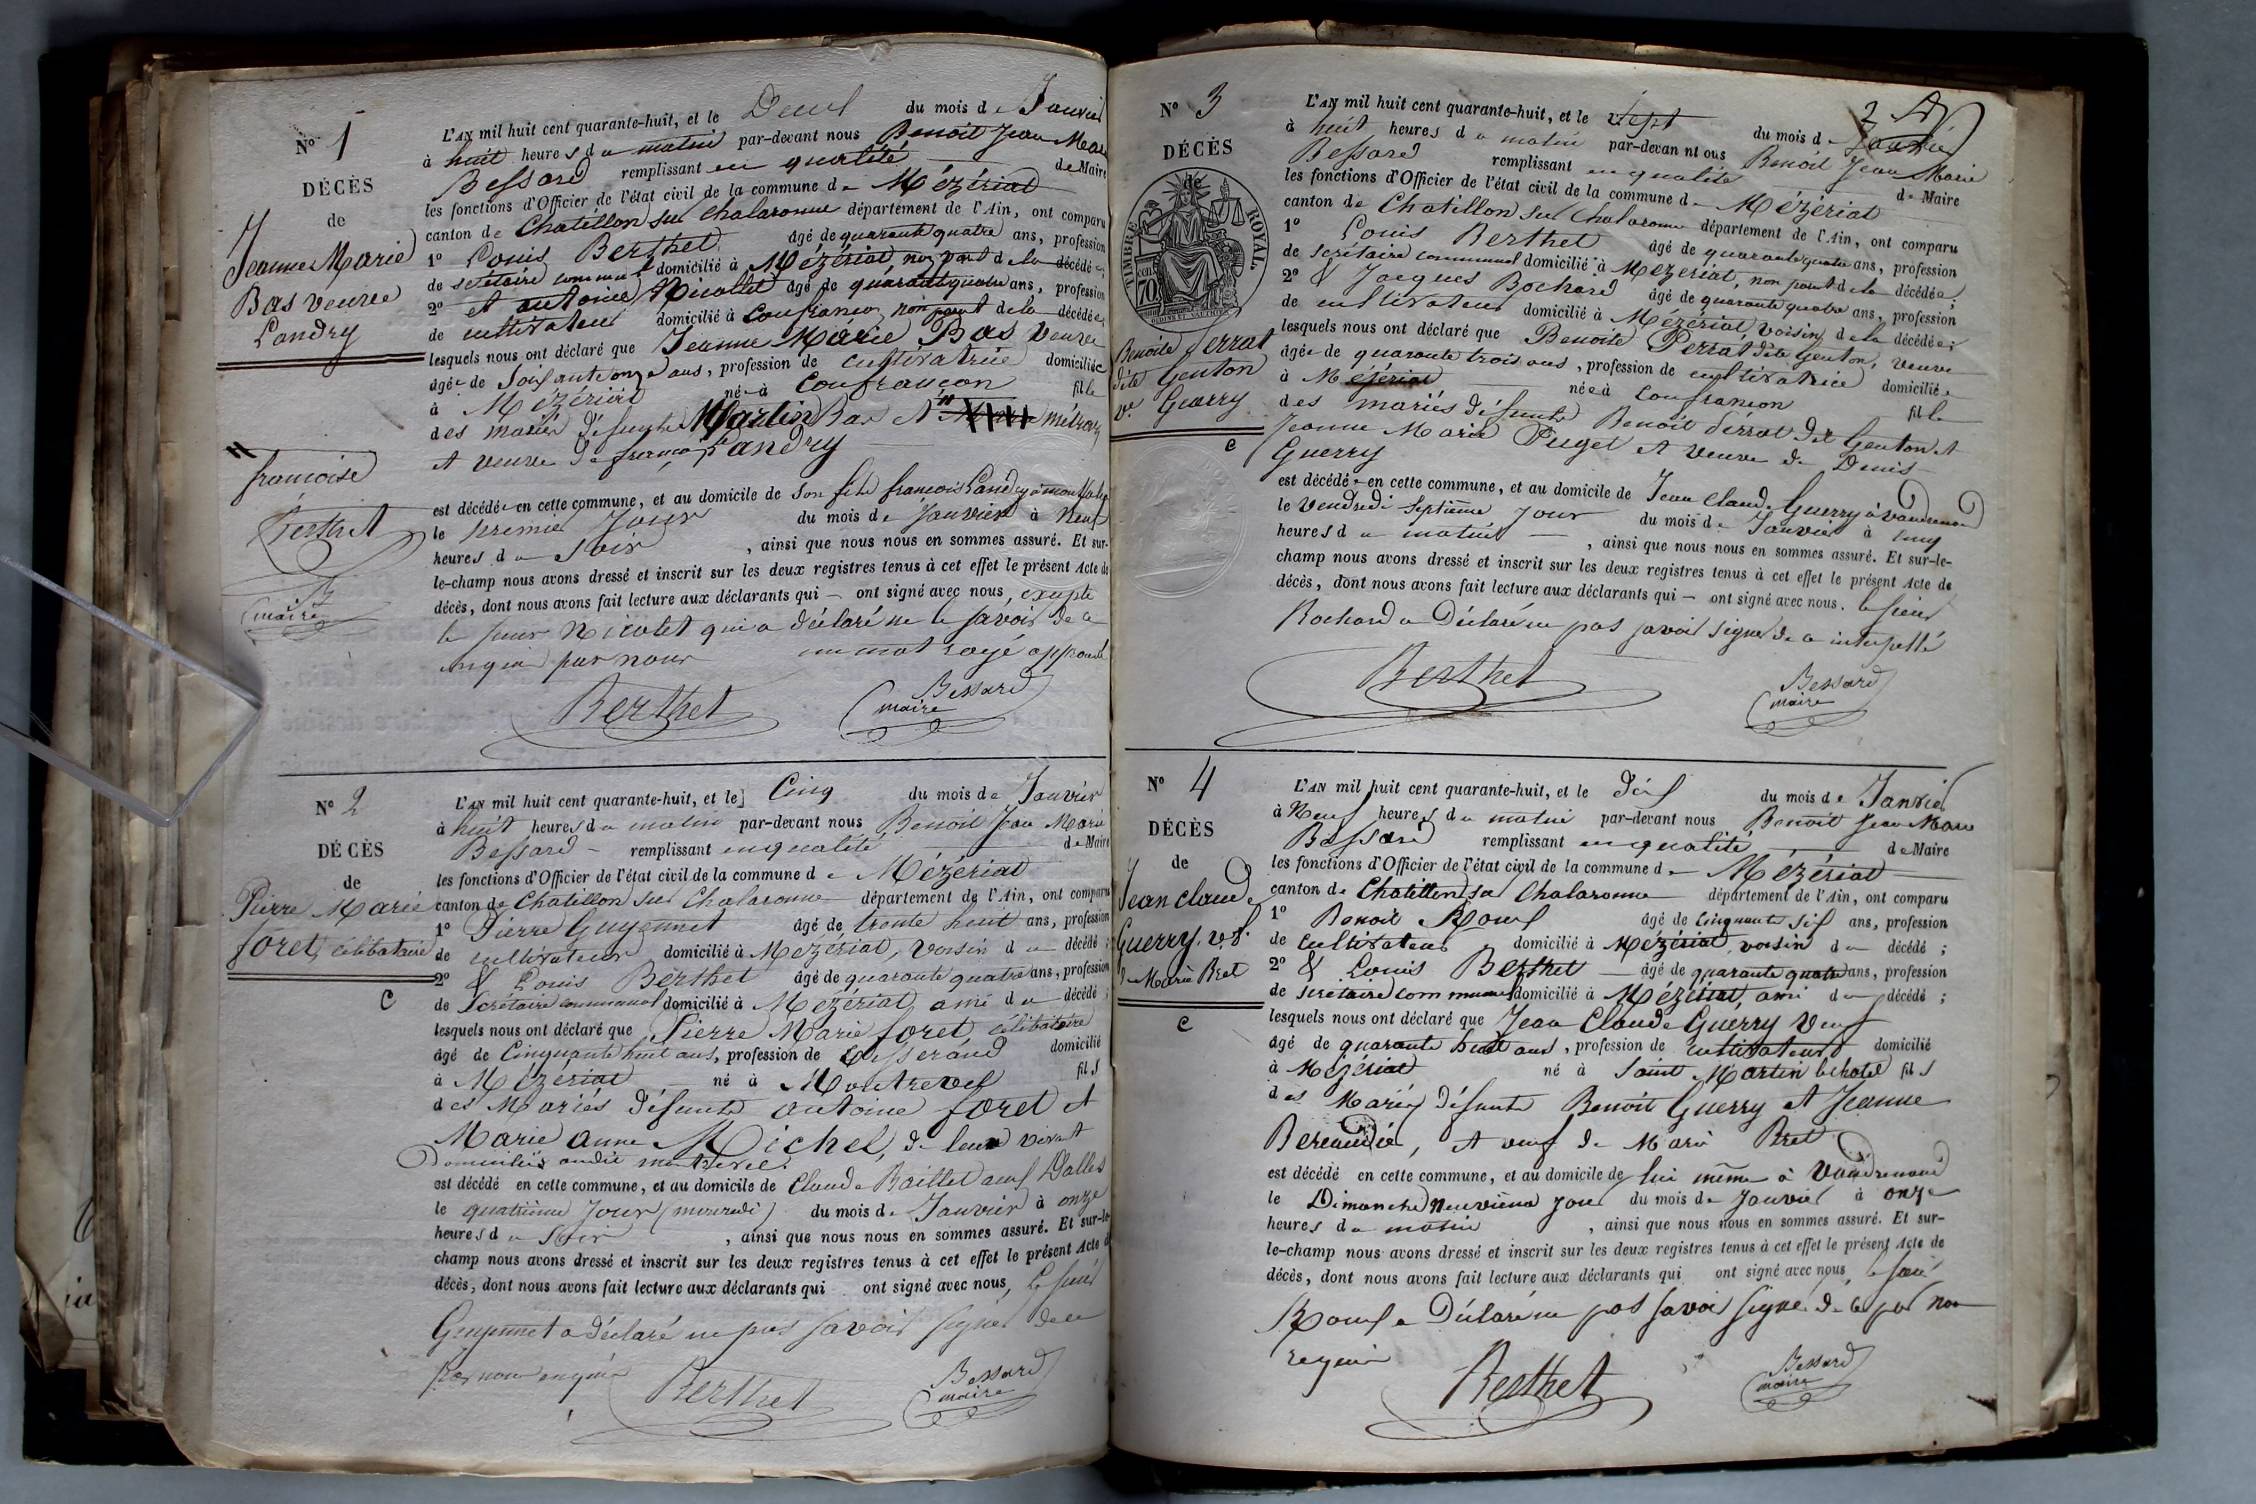 N° 1
DÉCÈS
de
Jeanne Marie
Bas veuve
Landry
françoise
Berthet
B
maire
L'AN mil huit cent quarante-huit, et le Deux du mois de Janvier
à huit heures du matin par-devant nous Benoit Jean Marie
Bessard remplissant en qualité de Maire
les fonctions d'Officier de l'état civil de la commune de Mézériat
canton de Chatillon sur Chalaronne département de l'Ain, ont comparu
1° Louis Berthet âgé de quarante quatre ans, profession
de secrétaire communal domicilié à Mézériat non parent de la décédée
2° et antoine Nicollet âgé de quarante quatre ans, profession
de cultivateur domicilié à Confrançon, non parent de la décédée
lesquels nous ont déclaré que Jeanne Marie Bas veuve
âgée de soixante onze ans, profession de cultivatrice domiciliée
à Mézériat née à Confrançon fille
des mariés défunts Martin Bas et métras
et veuve de françois Landry
est décédée en cette commune, et au domicile de son fils françois Landry à
le premier Jour du mois de Janvier à Neuf
heures du soir, ainsi que nous nous en sommes assuré. Et sur-
le-champ nous avons dressé et inscrit sur les deux registres tenus à cet effet le présent Acte de
décès, dont nous avons fait lecture aux déclarants qui — ont signé avec nous, excepté
le sieur Nicolet qui a déclaré ne le savoir de ce
enquis par nous un mot rayé approuvé
Berthet Bessard
maire
N° 2
DÉCÈS
de
Pierre Marie
foret, célibataire
C
L'AN mil huit cent quarante-huit, et le Cinq du mois de Janvier
à huit heures du matin par-devant nous Benoit Jean Marie
Bessard — remplissant en qualité de Maire
les fonctions d'Officier de l'état civil de la commune de Mézériat
canton de Chatillon sur Chalaronne département de l'Ain, ont comparu
1° Pierre Guyennet âgé de trente huit ans, profession
de cultivateur domicilié à Mézériat, voisin du décédé ;
2° & Louis Berthet âgé de quarante quatre ans, profession
de Secrétaire communal domicilié à Mézériat, ami du décédé ;
lesquels nous ont déclaré que Pierre Marie foret, célibataire
âgé de Cinquante huit ans, profession de tisserand domicilié
à Mézériat né à Montrevel fils
des Mariés défunts antoine foret et
Marie anne Michel, de leur vivant
Domiciliés audit montrevel.
est décédé en cette commune, et au domicile de Claude Baillet aux Dalles
le quatrième Jour (mercredi) du mois de Janvier à onze
heures du soir, ainsi que nous nous en sommes assuré. Et sur-le-
champ nous avons dressé et inscrit sur les deux registres tenus à cet effet le présent Acte de
décès, dont nous avons fait lecture aux déclarants qui ont signé avec nous, le sieur
Guyennet a déclaré ne pas savoir signer de ce
par nous enquis
Berthet Bessard
maire
N° 3
DÉCÈS
de
TIMBRE ROYAL
70
Benoite Perrat
dite Genton
ve Guerry
C
2
L'AN mil huit cent quarante-huit, et le sept du mois de Janvier
à huit heures du matin par-devan nt ous Benoit Jean Marie
Bessard remplissant en qualité de Maire
les fonctions d'Officier de l'état civil de la commune de Mézériat
canton de Chatillon sur Chalaronne département de l'Ain, ont comparu
1° Louis Berthet âgé de quarante quatre ans, profession
de secrétaire communal domicilié à Mézériat, non parent de la décédée ;
2° & Jacques Bochard âgé de quarante quatre ans, profession
de cultivateur domicilié à Mézériat, voisin de la décédée ;
lesquels nous ont déclaré que Benoite Perrat dite Genton, veuve
âgée de quarante trois ans, profession de cultivatrice domiciliée
à Mézériat née à Confrançon fille
des mariés défunts Benoit Perrat dit Genton et
Jeanne Marie Puget et veuve de Denis
Guerry
est décédée en cette commune, et au domicile de Jean Claude Guerry à Vandrenand
le vendredi septième jour du mois de Janvier à cinq
heures du matin —, ainsi que nous nous en sommes assuré. Et sur-le-
champ nous avons dressé et inscrit sur les deux registres tenus à cet effet le présent Acte de
décès, dont nous avons fait lecture aux déclarants qui — ont signé avec nous. le sieur
Bochard a Déclaré ne pas savoir signer de ce interpellé
Berthet Bessard
maire
N° 4
DÉCÈS
de
Jean Claude
Guerry, vf
de Marie Bret
C
L'AN mil huit cent quarante-huit, et le dix du mois de Janvier
à Neuf heures du matin par-devant nous Benoit Jean Marie
Bessard remplissant en qualité de Maire
les fonctions d'Officier de l'état civil de la commune de Mézériat
canton de Chatillon sur Chalaronne département de l'Ain, ont comparu
1° Benoit Roux âgé de cinquante six ans, profession
de cultivateur domicilié à Mézériat, voisin du décédé ;
2° & Louis Berthet âgé de quarante quatre ans, profession
de secrétaire communal domicilié à Mézériat, ami du décédé ;
lesquels nous ont déclaré que Jean Claude Guerry Veuf
âgé de quarante huit ans, profession de cultivateur domicilié
à Mézériat né à Saint Martin lechatel fils
des Mariés défunts Benoit Guerry et Jeanne
Bereaudier, et veuf de Marie Bret
est décédé en cette commune, et au domicile de lui même à Vandrenand
le Dimanche Neuvième jour du mois de Janvier à onze
heures du matin, ainsi que nous nous en sommes assuré. Et sur-
le-champ nous avons dressé et inscrit sur les deux registres tenus à cet effet le présent Acte de
décès, dont nous avons fait lecture aux déclarants qui ont signé avec nous, le sieur
Roux a Déclaré ne pas savoir signer de ce par nous
requis
Berthet Bessard
maire